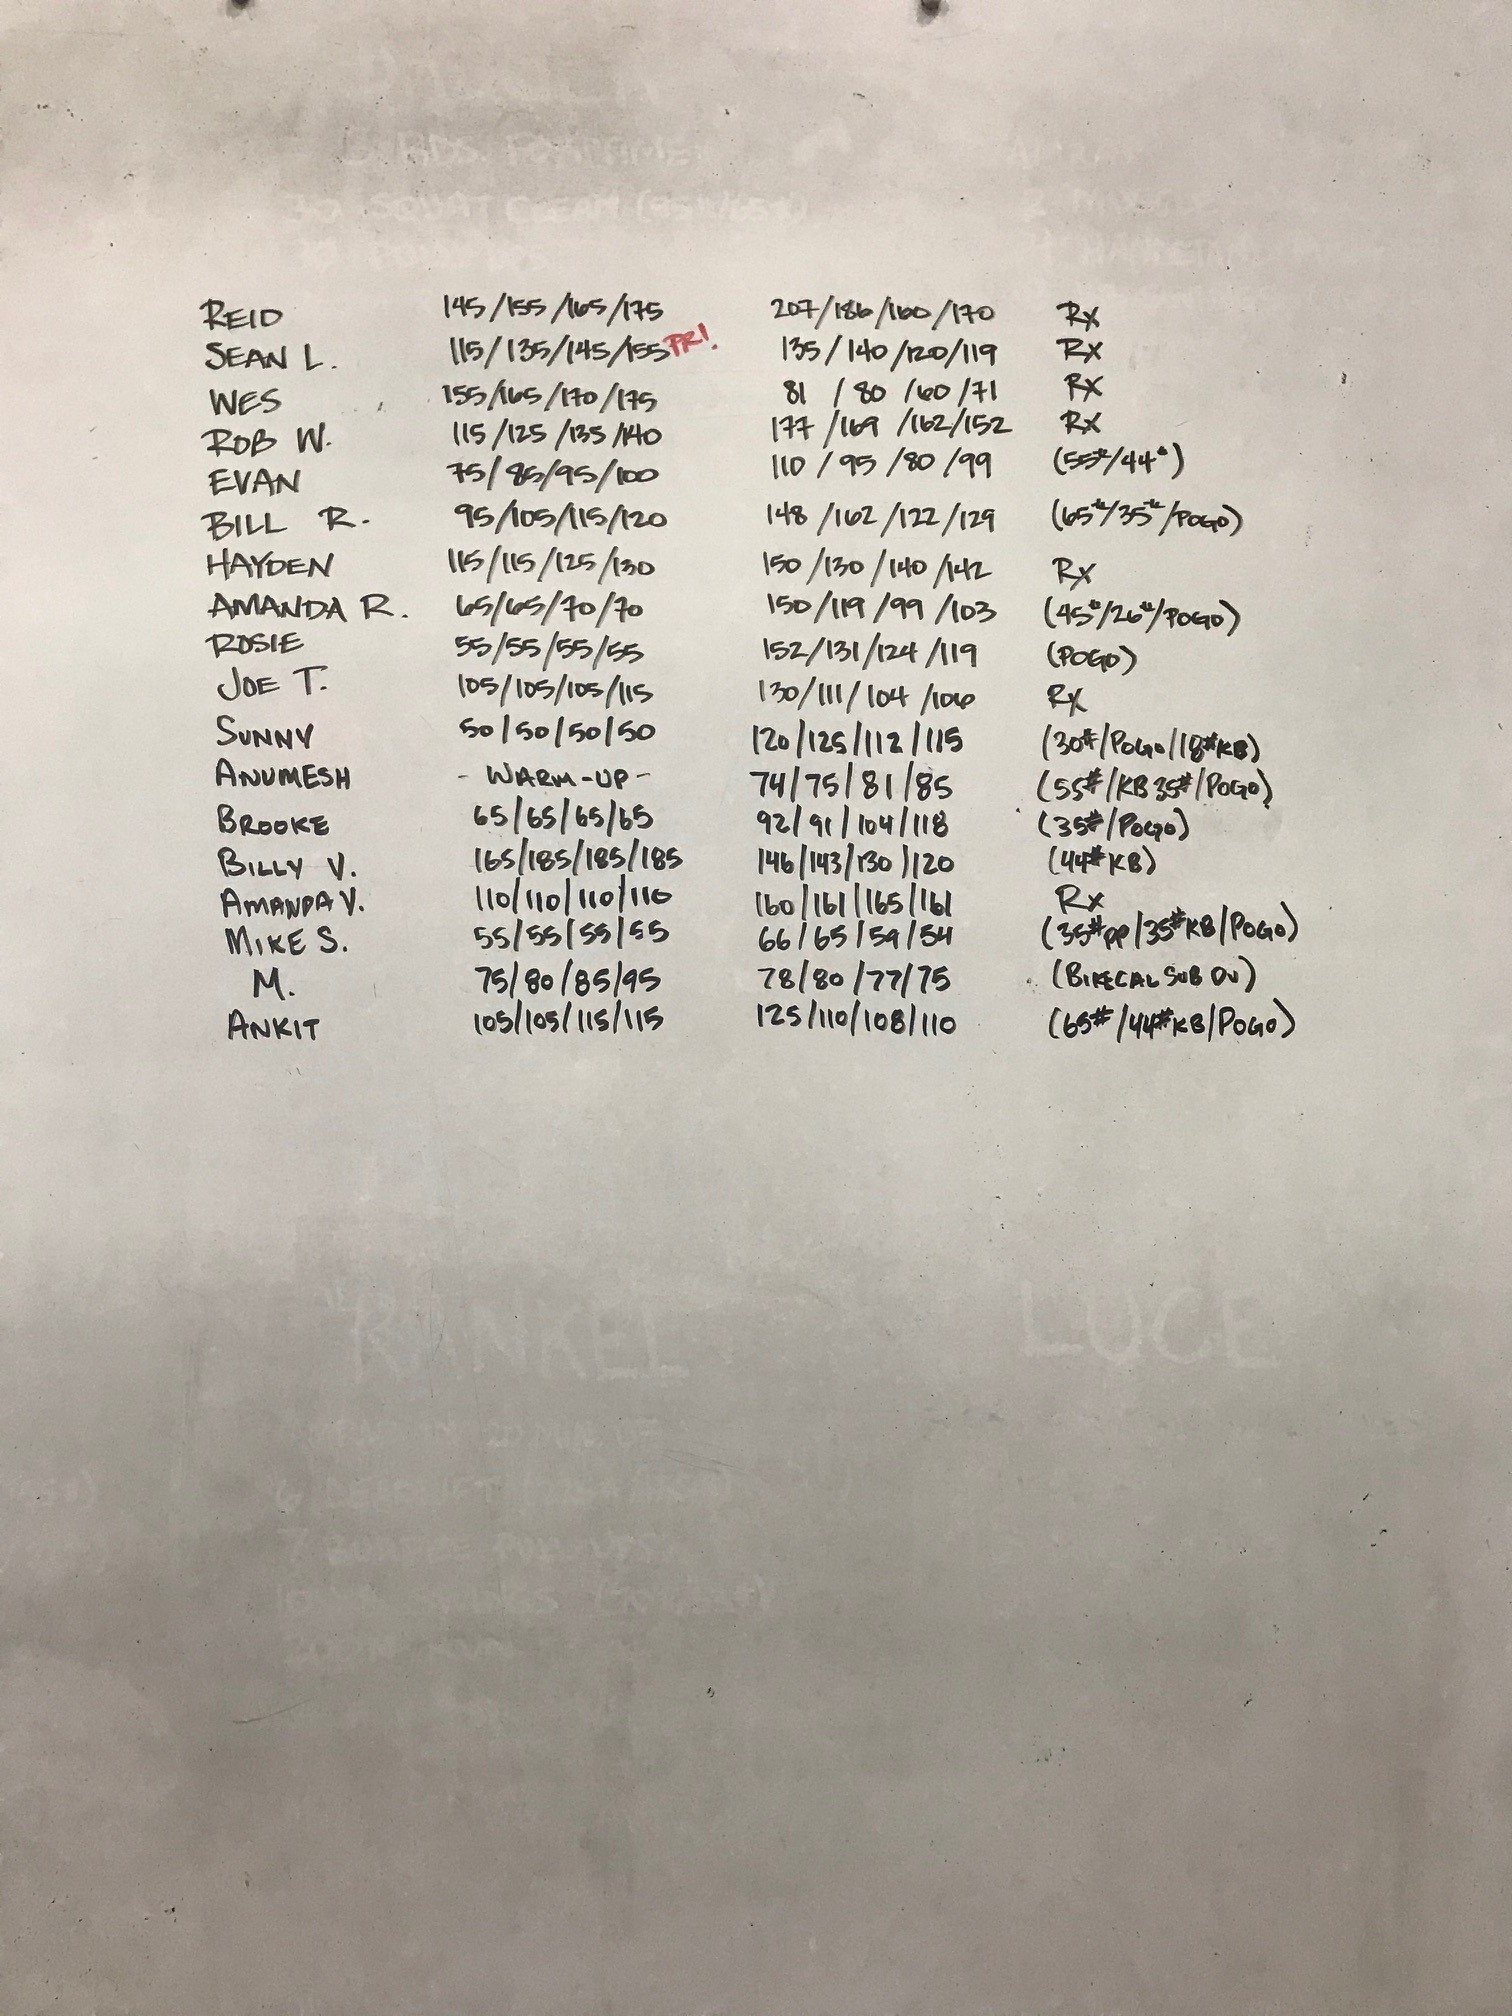 REID 145/155/165/175 207/186/160/170 Rx
SEAN L. 115/135/145/155 PR! 135/140/120/119 Rx
WES 155/165/170/175 81/80/60/71 Rx
ROB W. 115/125/135/140 177/169/162/152 Rx
EVAN 75/85/95/100 110/95/80/99 (55#/44#)
BILL R. 95/105/115/120 148/162/122/129 (65#/35#/POGO)
HAYDEN 115/115/125/130 150/130/140/142 Rx
AMANDA R. 65/65/70/70 150/119/99/103 (45#/26#/POGO)
ROSIE 55/55/55/55 152/131/124/119 (POGO)
JOE T. 105/105/105/115 130/111/104/106 Rx
SUNNY 50/50/50/50 120/125/112/115 (30#/POGO/18#KB)
ANUMESH - WARM-UP - 74/75/81/85 (55#/KB 35#/POGO)
BROOKE 65/65/65/65 92/91/104/118 (35#/POGO)
BILLY V. 165/185/185/185 146/143/130/120 (44#KB)
AMANDA V. 110/110/110/110 160/161/165/161 Rx
MIKE S. 55/55/55/55 66/65/59/54 (35#PP/35#KB/POGO)
M. 75/80/85/95 78/80/77/75 (BIKECAL SUB DU)
ANKIT 105/105/115/115 125/110/108/110 (65#/44#KB/POGO)
"RANKEL" LUCE